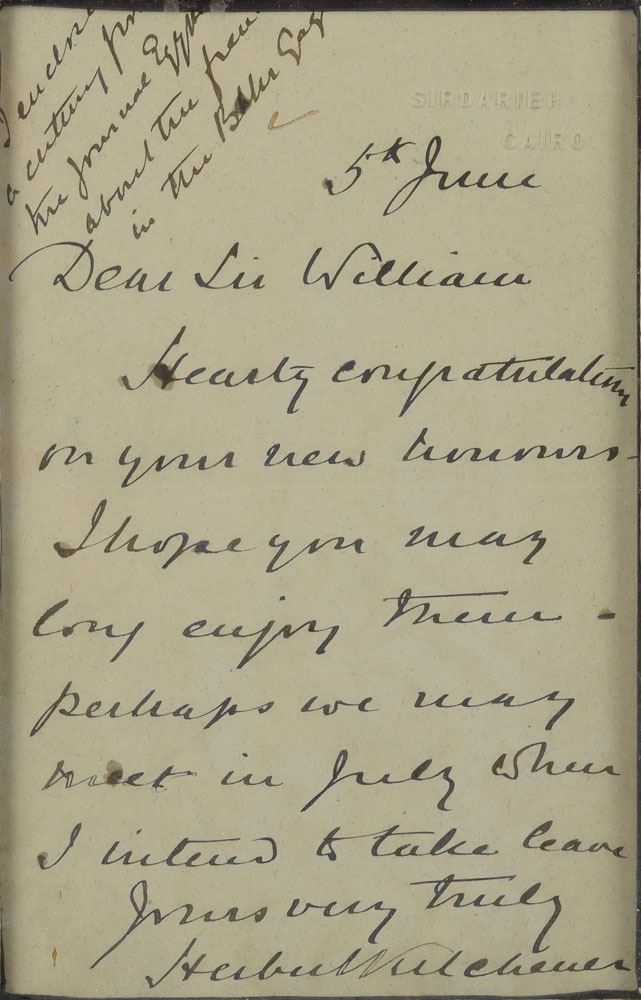 I enclose
a cutting from
the Journal Egypt
about the
in the
SIRDARIEH
CAIRO
5th June
Dear Sir William
Hearty congratulations
on your new honours -
I hope you may
long enjoy them -
perhaps we may
meet in July when
I intend to take leave
Yours very truly
Herbert Kitchener